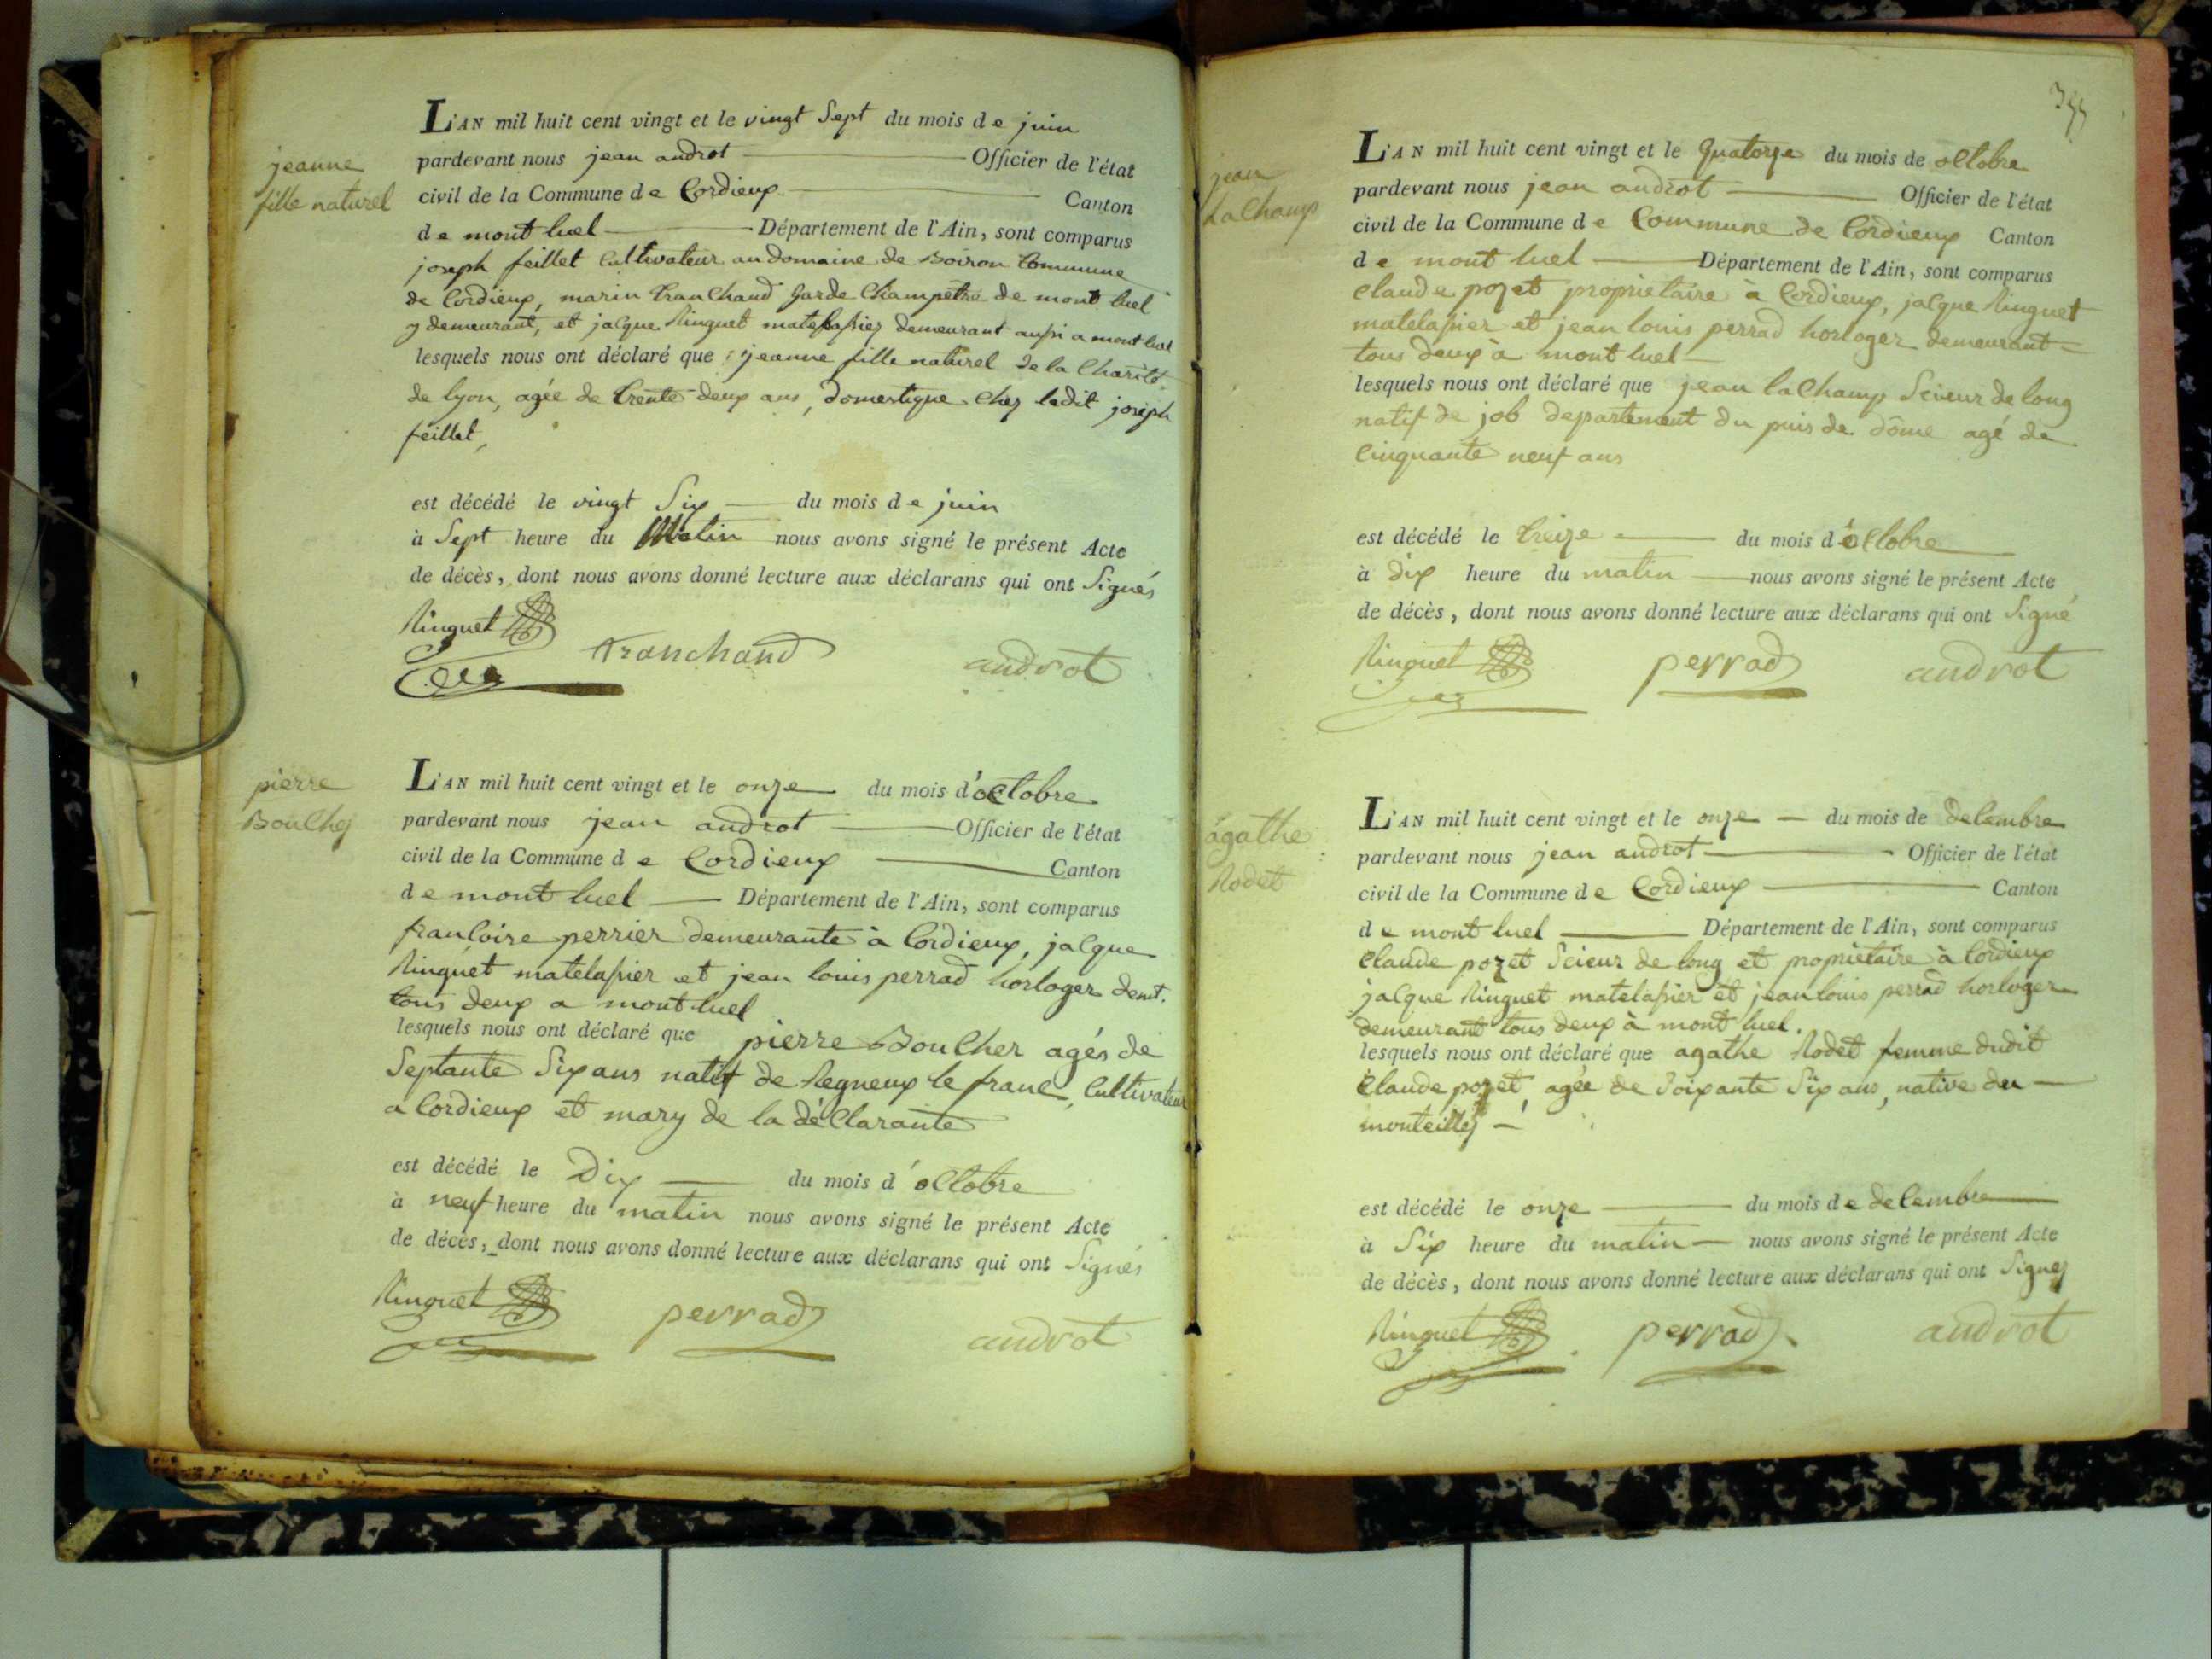 L'AN mil huit cent vingt et le vingt Sept du mois de juin
jeanne
fille naturel
pardevant nous jean androt Officier de l'état
civil de la Commune de Cordieux Canton
de mont luel Département de l'Ain, sont comparus
joseph feillet Cultivateur au domaine de Boiron Commune
de Cordieux, marin tranchand garde Champetre de mont luel
y demeurant, et jacque Ringuet matelassier demeurant aussi a mont luel
lesquels nous ont déclaré que jeanne fille naturel de la Charité
de lyon, agée de trente deux ans, domestique chez ledit joseph
feillet,
est décédé le vingt Six du mois de juin
à Sept heure du Matin nous avons signé le présent Acte
de décès, dont nous avons donné lecture aux déclarans qui ont Signés
Ringuet Tranchand androt
pierre
Bouchez
L'AN mil huit cent vingt et le onze du mois d'octobre
pardevant nous jean androt Officier de l'état
civil de la Commune de Cordieux Canton
de mont luel Département de l'Ain, sont comparus
francoise perrier demeurante à Cordieux, jacque
Ringuet matelassier et jean louis perrad horloger demt.
tous deux a mont luel
lesquels nous ont déclaré que pierre Boucher agés de
Septante Six ans natif de Regneux le franc, Cultivateur
a Cordieux et mary de la déclarante
est décédé le Dix du mois d'octobre
à neuf heure du matin nous avons signé le présent Acte
de décès, dont nous avons donné lecture aux déclarans qui ont Signés
Ringuet perrad androt
399
jean
Lachamp
L'AN mil huit cent vingt et le Quatorze du mois de octobre
pardevant nous jean androt Officier de l'état
civil de la Commune de Commune de Cordieux Canton
de mont luel Département de l'Ain, sont comparus
Claude pozet propriètaire à Cordieux, jacque Ringuet
matelassier et jean louis perrad horloger demeurant
tous deux à mont luel
lesquels nous ont déclaré que jean lachamp Scieur de long
natif de job departement du puis de dôme agé de
Cinquante neuf ans
est décédé le treize du mois d'octobre
à dix heure du matin nous avons signé le présent Acte
de décès, dont nous avons donné lecture aux déclarans qui ont Signé
Ringuet perrad androt
agathe
Rodet
L'AN mil huit cent vingt et le onze du mois de decembre
pardevant nous jean androt Officier de l'état
civil de la Commune de Cordieux Canton
de mont luel Département de l'Ain, sont comparus
Claude pozet Scieur de long et propriètaire à Cordieux
jacque Ringuet matelassier et jean louis perrad horloger
demeurant tous deux à mont luel.
lesquels nous ont déclaré que agathe Rodet femme dudit
Claude pozet, agée de Soixante Six ans, native du
monteillez
est décédé le onze du mois de decembre
à Six heure du matin nous avons signé le présent Acte
de décès, dont nous avons donné lecture aux déclarans qui ont Signez
Ringuet perrad androt